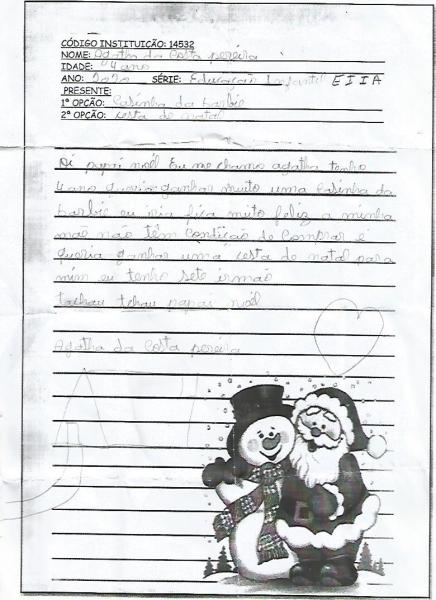 CÓDIGO INSTITUIÇÃO: 14532
NOME: Agatha da Costa pereira
IDADE: 4 ano
ANO: 2020 SÉRIE: Educação Infantil EIIA
PRESENTE:
1ª OPÇÃO: Casinha da barbie
2ª OPÇÃO: cesta de natal
Oi papai noél Eu me chamo agatha tenho
4 ano queria ganhar muito uma Casinha da
barbie eu ia fica muto feliz a minha
mãe não têm condição de comprar e
queria ganhar uma cesta de natal para
mim eu tenho sete irmão
tachau tchau papai noél
Agatha da Costa pereira